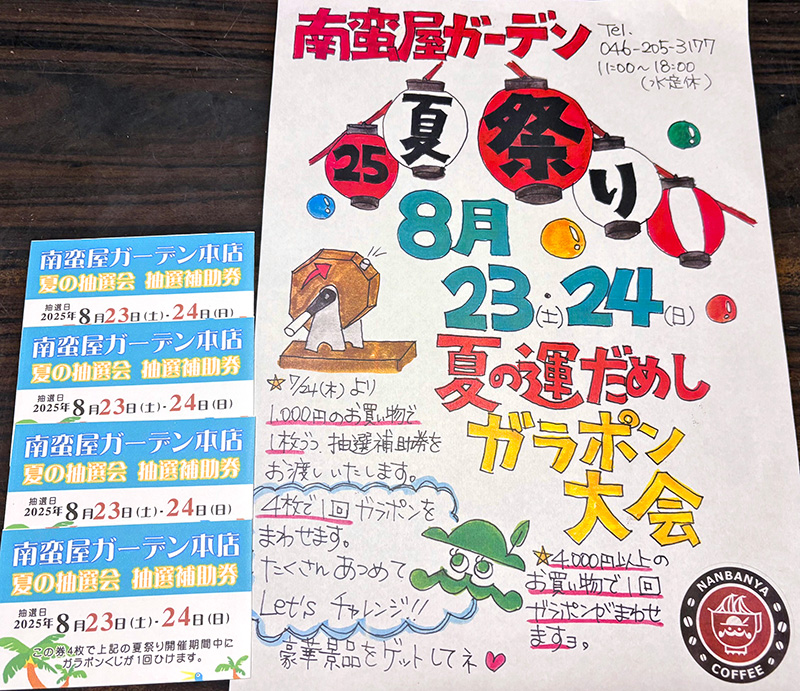 南蛮屋ガーデン
Tel.
046-205-3177
11:00〜18:00
(水定休)
25夏祭り
8月
23(土)・24(日)
夏の運だめし
ガラポン
大会
☆7/24(木)より
1,000円のお買い物で
1枚づつ、抽選補助券を
お渡しいたします。
4枚で1回ガラポンを
まわせます。
たくさんあつめて
Let's チャレンジ!!
豪華景品をゲットしてネ♥
☆4,000円以上の
お買い物で1回
ガラポンがまわせ
ますョ。
NANBANYA
COFFEE
南蛮屋ガーデン本店
夏の抽選会 抽選補助券
抽選日
2025年8月23日(土)・24日(日)
南蛮屋ガーデン本店
夏の抽選会 抽選補助券
抽選日
2025年8月23日(土)・24日(日)
南蛮屋ガーデン本店
夏の抽選会 抽選補助券
抽選日
2025年8月23日(土)・24日(日)
南蛮屋ガーデン本店
夏の抽選会 抽選補助券
抽選日
2025年8月23日(土)・24日(日)
この券4枚で上記の夏祭り開催期間中に
ガラポンくじが1回ひけます。